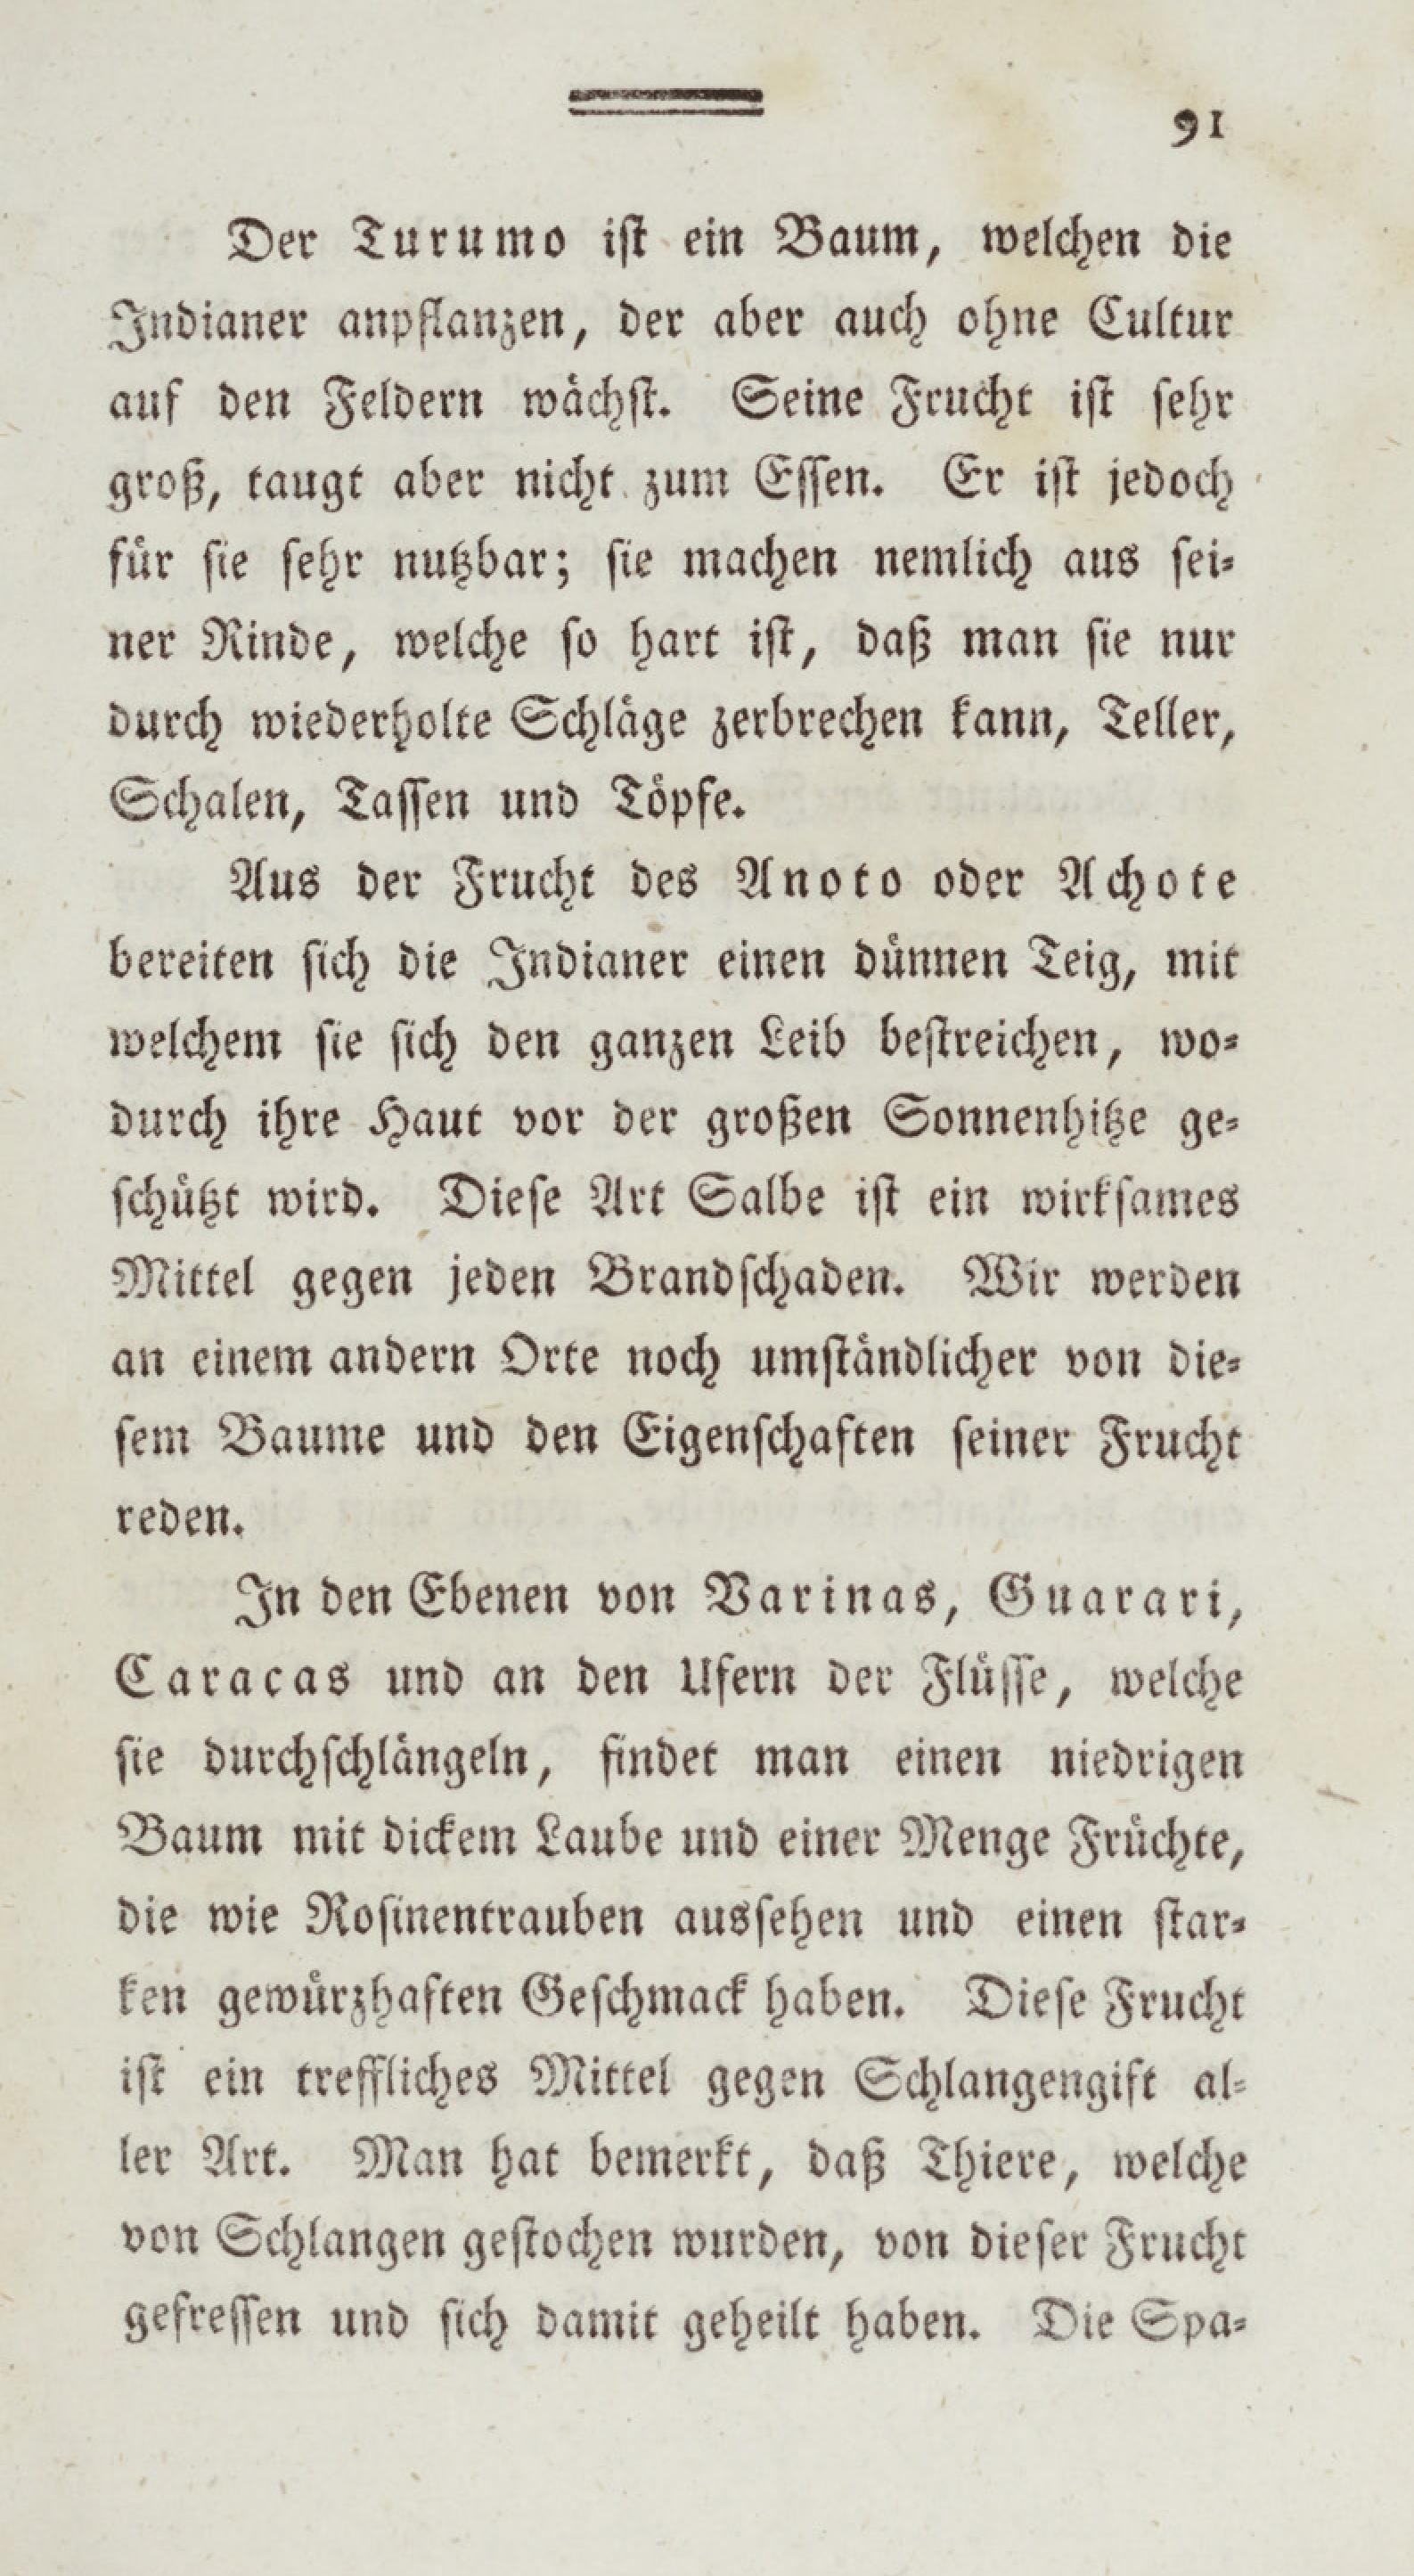 91
Der Turumo ist ein Baum, welchen die
Indianer anpflanzen, der aber auch ohne Cultur
auf den Feldern wächst. Seine Frucht ist sehr
groß, taugt aber nicht zum Essen. Er ist jedoch
für sie sehr nutzbar; sie machen nemlich aus sei-
ner Rinde, welche so hart ist, daß man sie nur
durch wiederholte Schläge zerbrechen kann, Teller,
Schalen, Tassen und Töpfe.
Aus der Frucht des Anoto oder Achote
bereiten sich die Indianer einen dünnen Teig, mit
welchem sie sich den ganzen Leib bestreichen, wo-
durch ihre Haut vor der großen Sonnenhitze ge-
schützt wird. Diese Art Salbe ist ein wirksames
Mittel gegen jeden Brandschaden. Wir werden
an einem andern Orte noch umständlicher von die-
sem Baume und den Eigenschaften seiner Frucht
reden.
In den Ebenen von Varinas, Guarari,
Caracas und an den Ufern der Flüsse, welche
sie durchschlängeln, findet man einen niedrigen
Baum mit dickem Laube und einer Menge Früchte,
die wie Rosinentrauben aussehen und einen star-
ken gewürzhaften Geschmack haben. Diese Frucht
ist ein treffliches Mittel gegen Schlangengift al-
ler Art. Man hat bemerkt, daß Thiere, welche
von Schlangen gestochen wurden, von dieser Frucht
gefressen und sich damit geheilt haben. Die Spa-